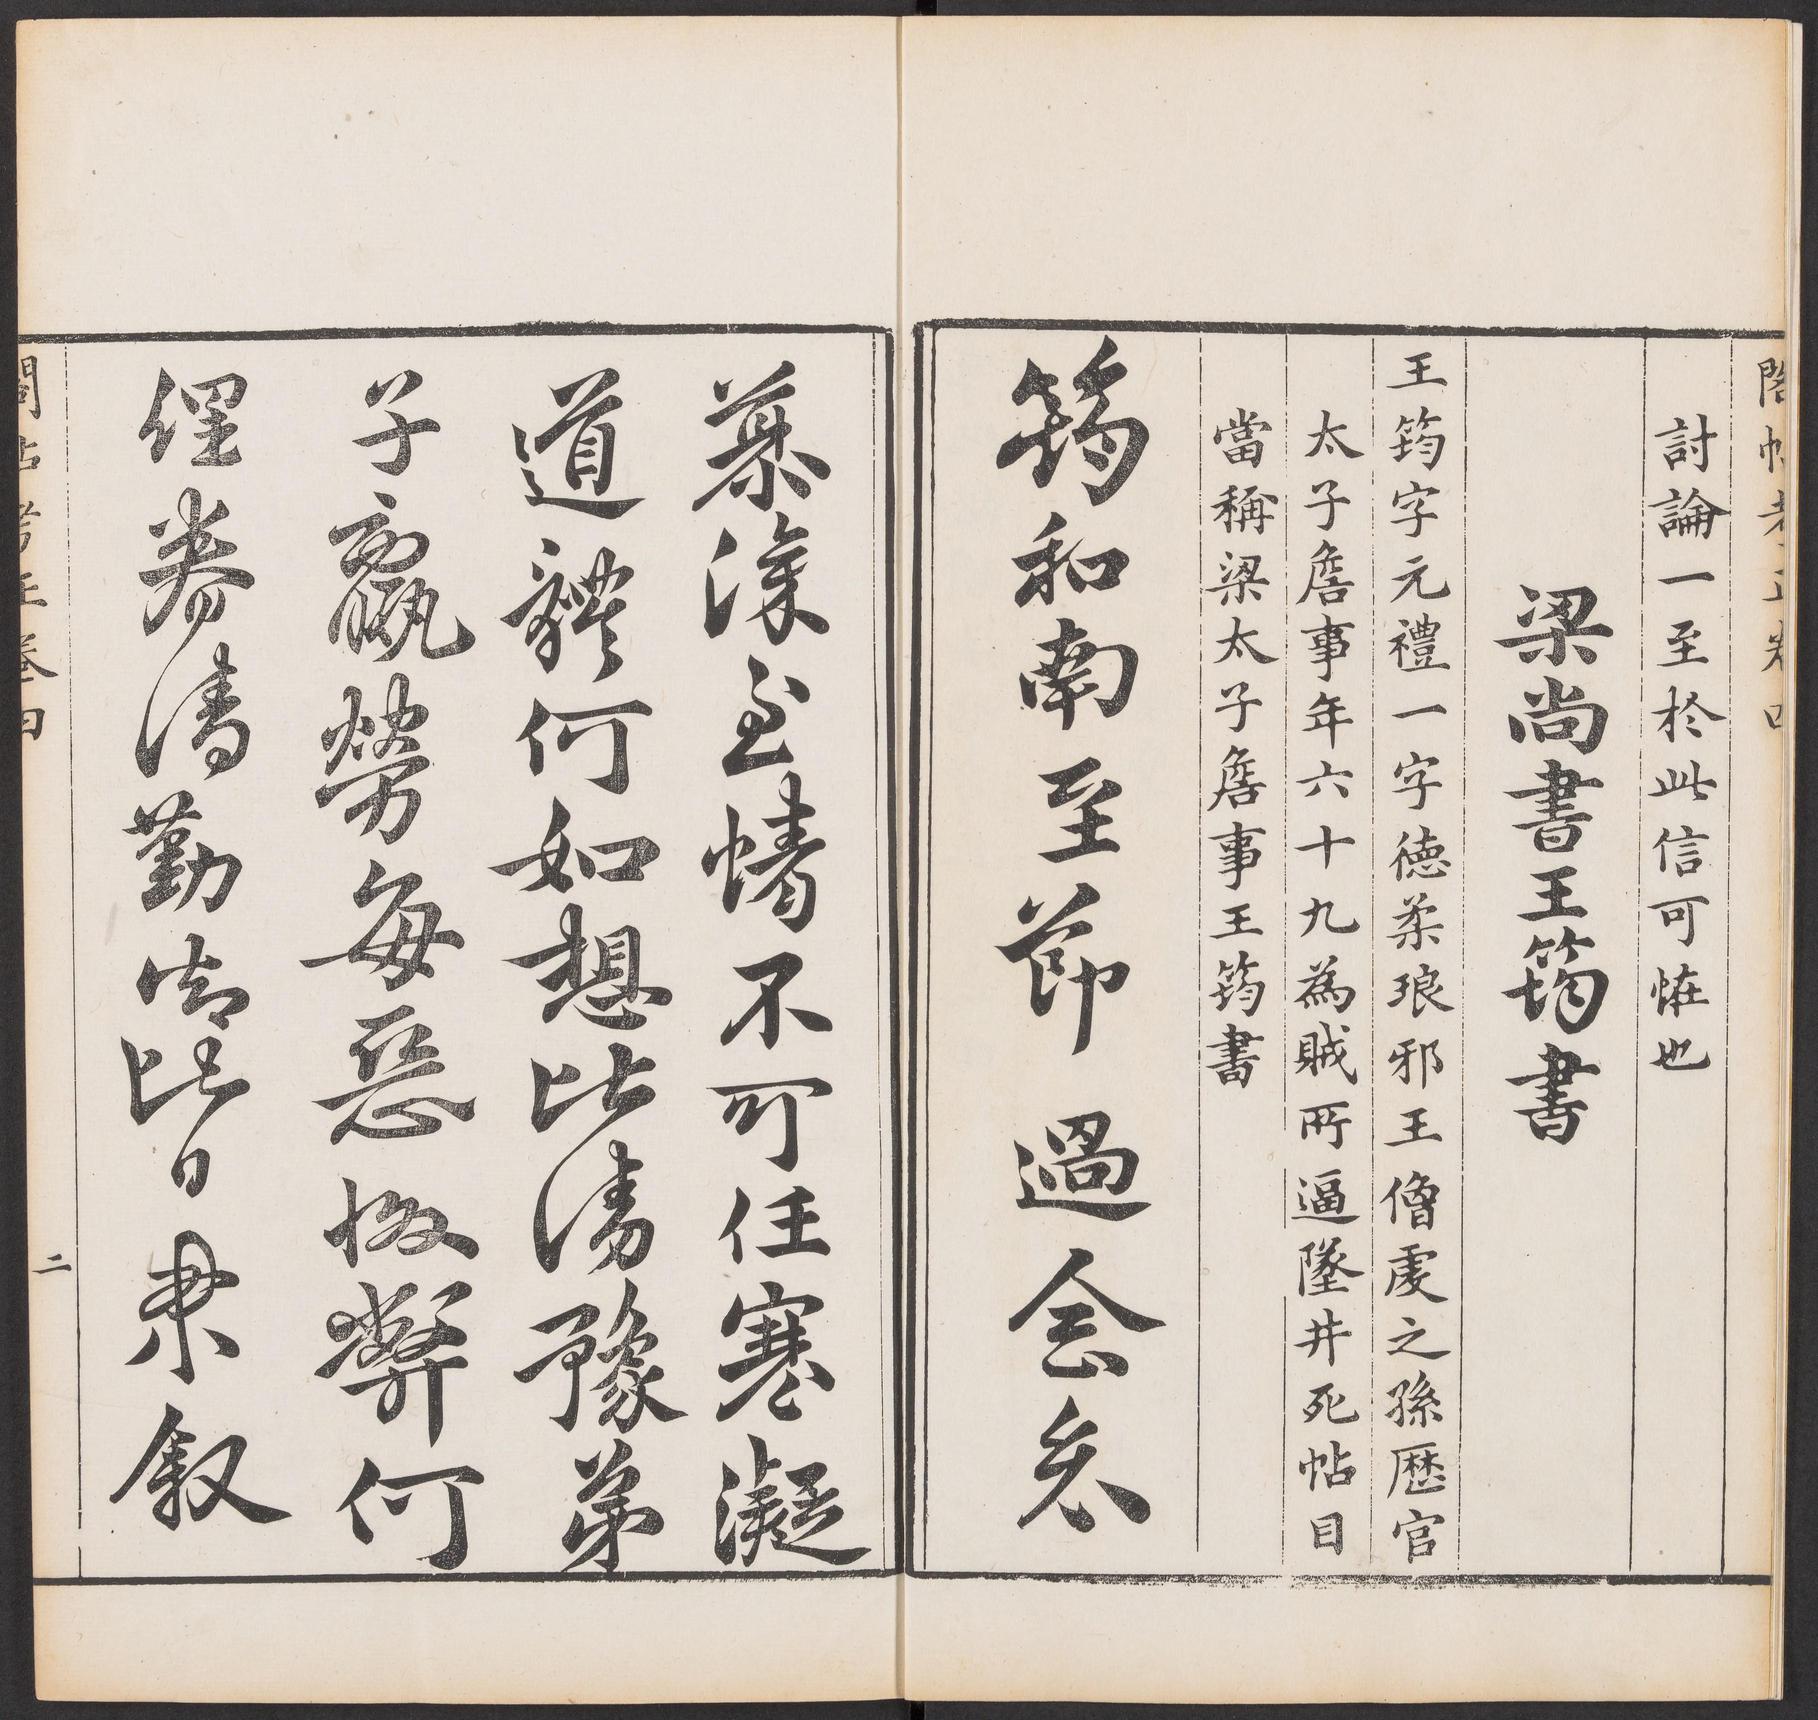 閣帖考正卷四
討論一至於此信可恠也
梁尚書王筠書
王筠字元禮一字徳柔琅邪王僧虔之孫歷官
太子詹事年六十九為賊所逼墜井死帖目
當稱梁太子詹事王筠書
筠和南至節過念哀
慕深至情不可任寒凝
道體何如想比清豫弟
子羸勞每惡弊何
俚眷清勤比日叙
閣帖考正卷四
二